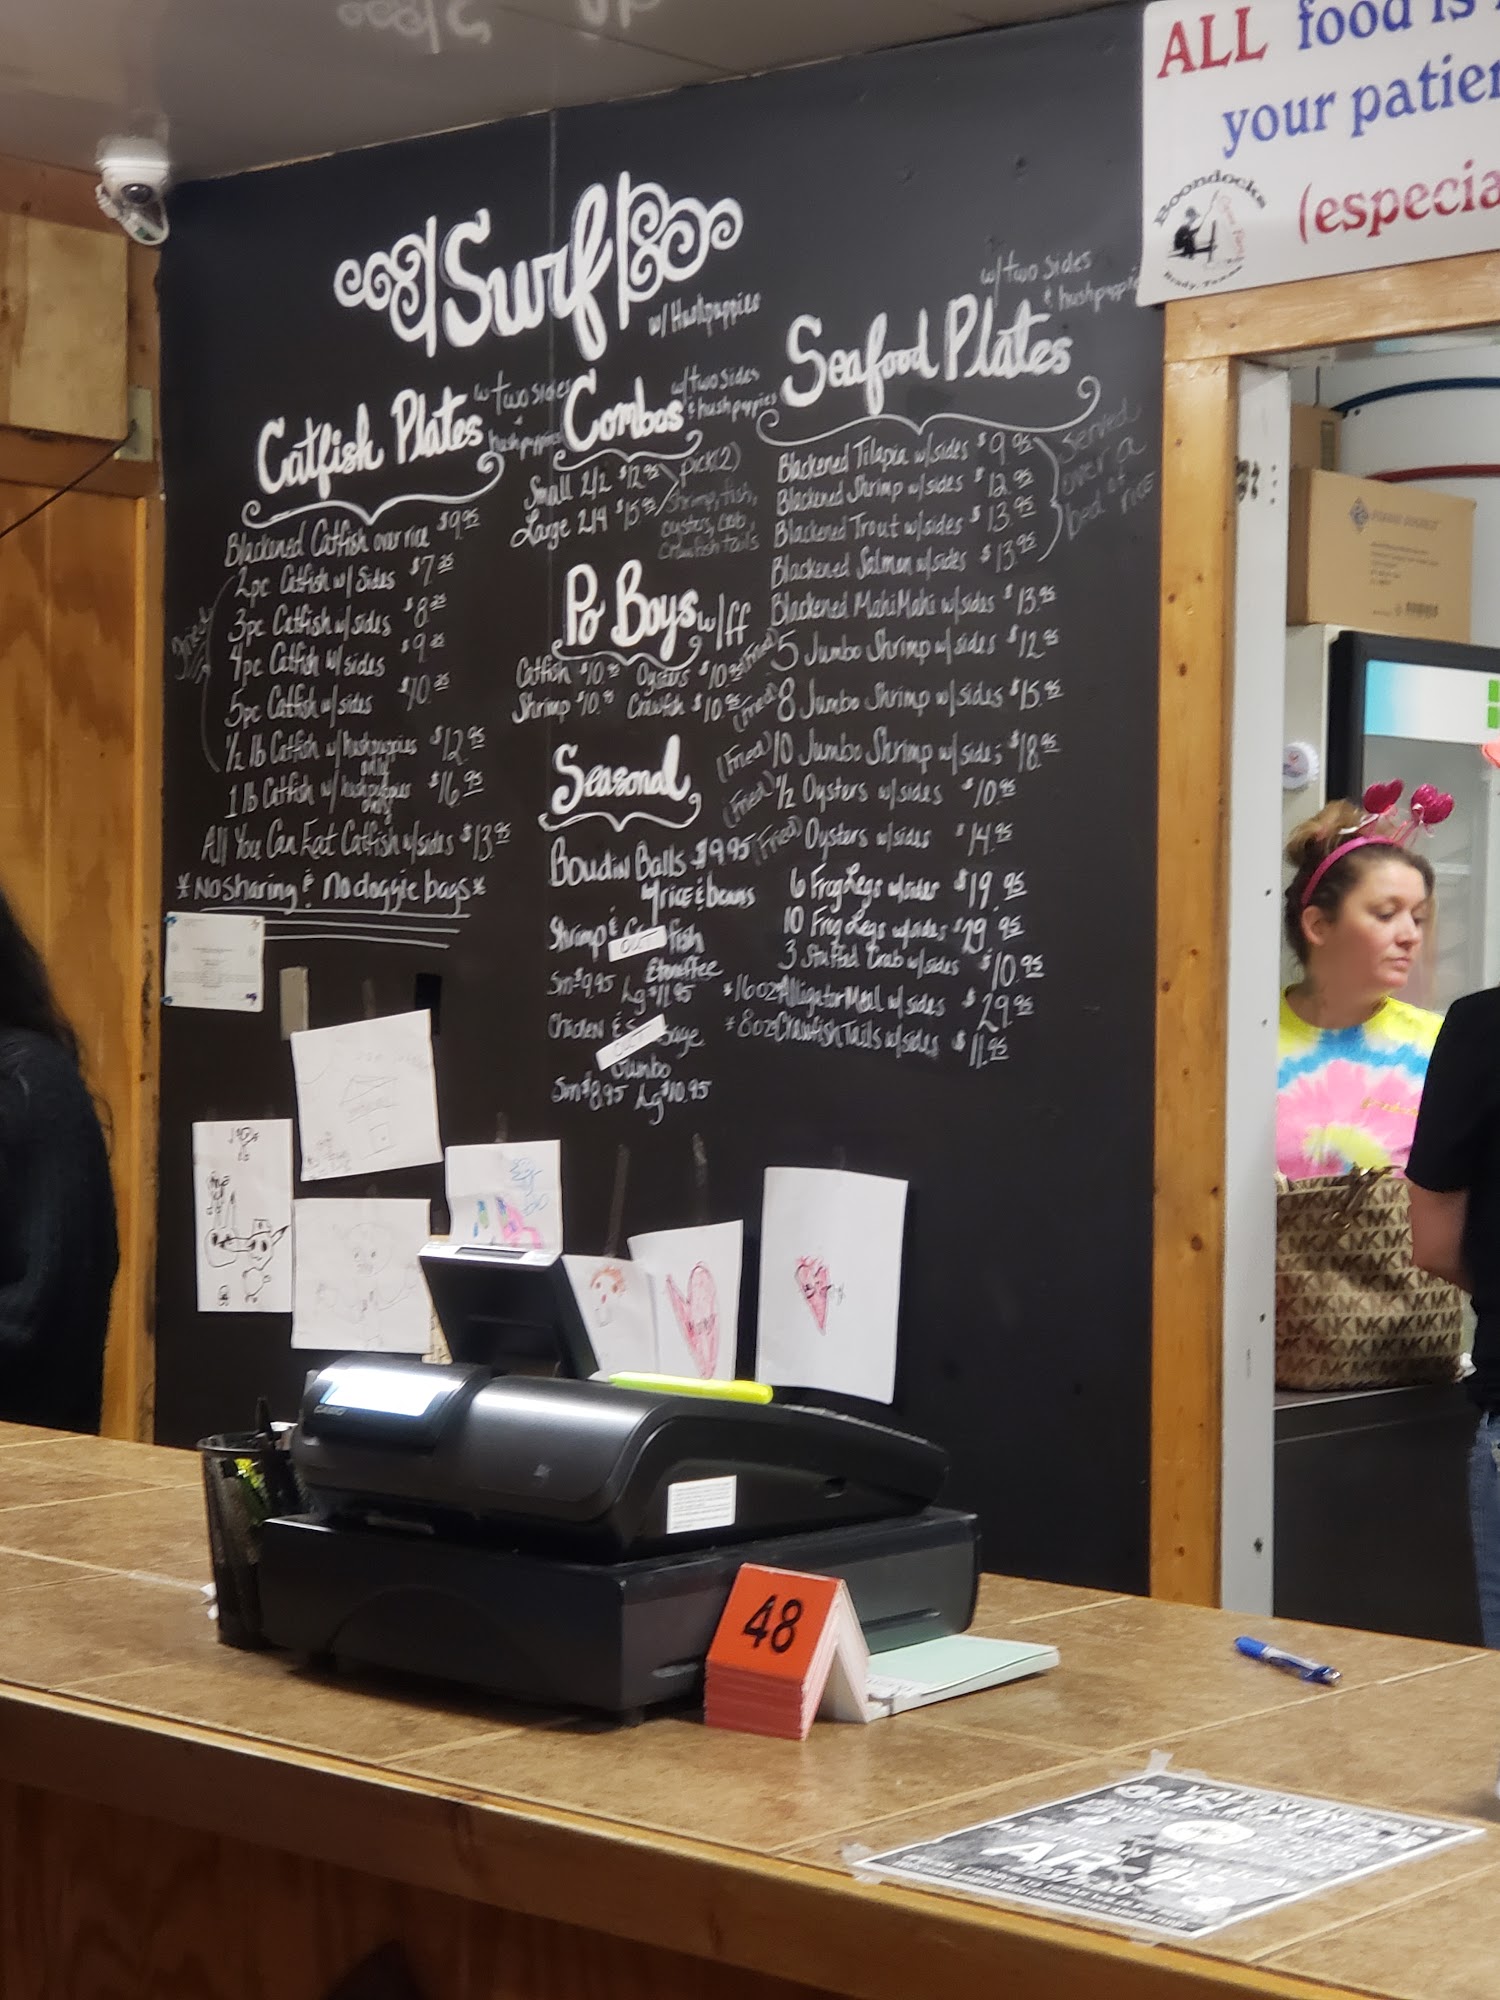 Surf
w/ Hushpuppies
Catfish Plates
w/ two sides
hushpuppies
Blackened Catfish over rice $9.95
2pc Catfish w/ Sides $7.25
3pc Catfish w/ sides $8.25
4pc Catfish w/ sides $9.25
5pc Catfish w/ sides $10.25
1/2 lb Catfish w/ hushpuppies only $12.95
1 lb Catfish w/ hushpuppies only $16.95
All You Can Eat Catfish w/ sides $13.95
*No sharing & No doggie bags*
Combos
w/ two sides
& hushpuppies
Small 2/2 $12.95
Large 2/4 $15.95
pick (2)
Shrimp, fish,
oysters, crab,
Crawfish tails
Po Boys w/ff
Catfish $10.95 Oysters $10.95
Shrimp $10.95 Crawfish $10.95
Seasonal
Boudin Balls $9.95
w/rice & beans
Shrimp & fish
OUT
Etouffee
Sm $9.95 Lg $11.95
Chicken & Sausage
OUT
Gumbo
Sm $8.95 Lg $10.95
Seafood Plates
w/ two sides
& hushpuppies
Blackened Tilapia w/sides $9.95
Blackened Shrimp w/sides $12.95
Blackened Trout w/sides $13.95
Blackened Salmon w/sides $13.95
Blackened MahiMahi w/sides $13.95
Served
over a
bed of
rice
(Fried) 5 Jumbo Shrimp w/sides $12.95
(Fried) 8 Jumbo Shrimp w/sides $15.95
(Fried) 10 Jumbo Shrimp w/sides $18.95
(Fried) 1/2 Oysters w/sides $10.95
(Fried) Oysters w/sides $14.95
6 Frog Legs w/sides $19.95
10 Frog Legs w/sides $29.95
3 Stuffed Crab w/sides $10.95
*16oz Alligator Meal w/sides $29.95
*8oz Crawfish Tails w/sides $11.95
ALL food is
your patien
(especia
Boondocks
Brady, Texas
CASIO
48
MK